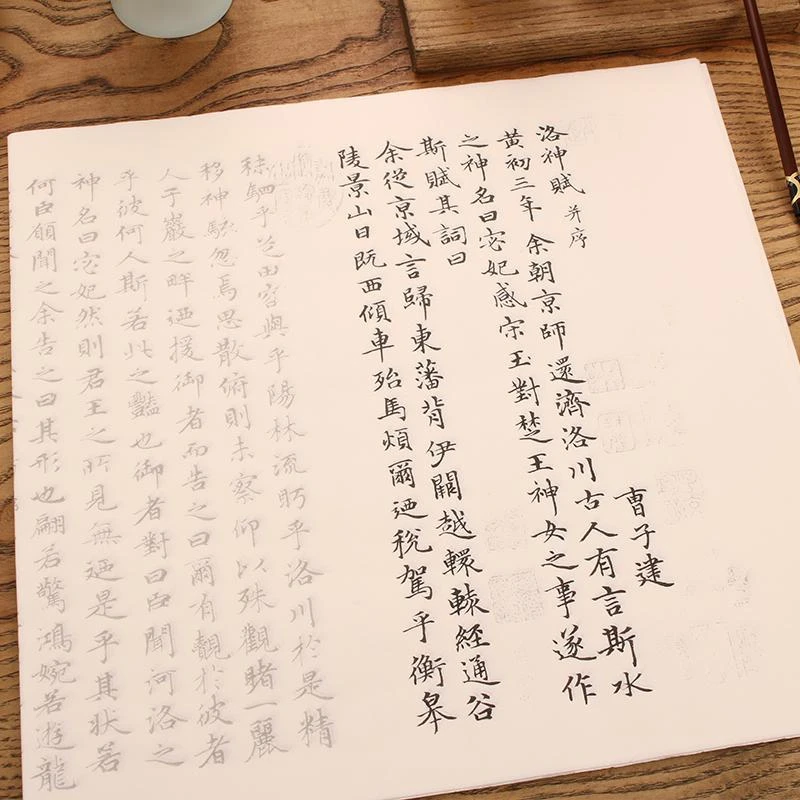 洛神賦 并序 曹子建
黄初三年余朝京師還濟洛川古人有言斯水
之神名曰宓妃感宋玉對楚王神女之事遂作
斯賦其詞曰
余從京域言歸東藩背伊闕越轘轅經通谷
陵景山日既西傾車殆馬煩爾迺稅駕乎衡皋
秣駟乎芝田容與乎陽林流眄乎洛川於是精
移神駭忽焉思散俯則未察仰以殊觀睹一麗
人于巖之畔迺援御者而告之曰爾有覿於彼者
乎彼何人斯若此之豔也御者對曰臣聞河洛之
神名曰宓妃然則君王之所見無迺是乎其狀若
何臣願聞之余告之曰其形也翩若驚鴻婉若遊龍